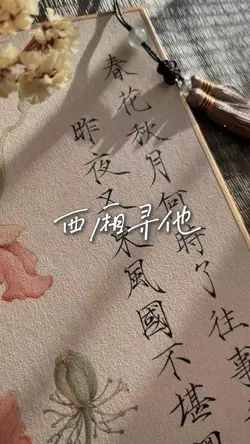 春花秋月何時了往事
昨夜又東風國不堪
西厢寻他